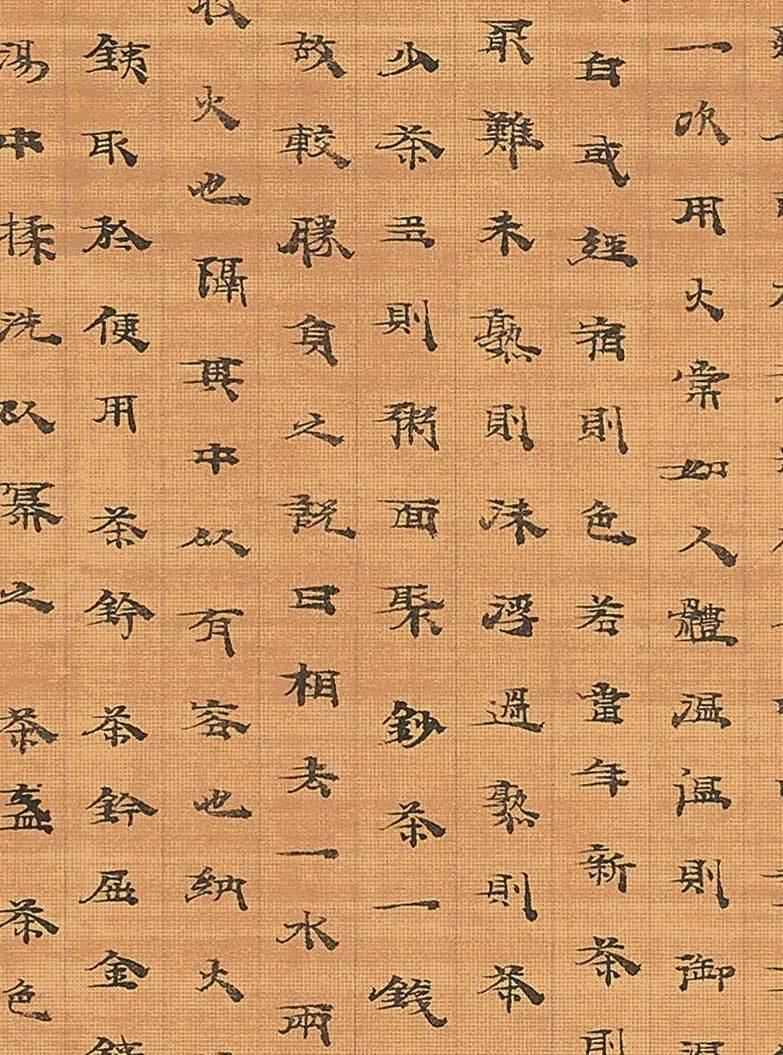 一吹用火常如人體温温則御
白或經宿則色若當年新茶則
最難未熟則沫浮過熟則茶
少茶多則粥面聚鈔茶一錢
故較勝負之說曰相去一水兩
收火也隔其中以有容也納火
鋏取於便用 茶鈐 茶鈐屈金鐵
湯中揉洗以羃之 茶盞 茶色